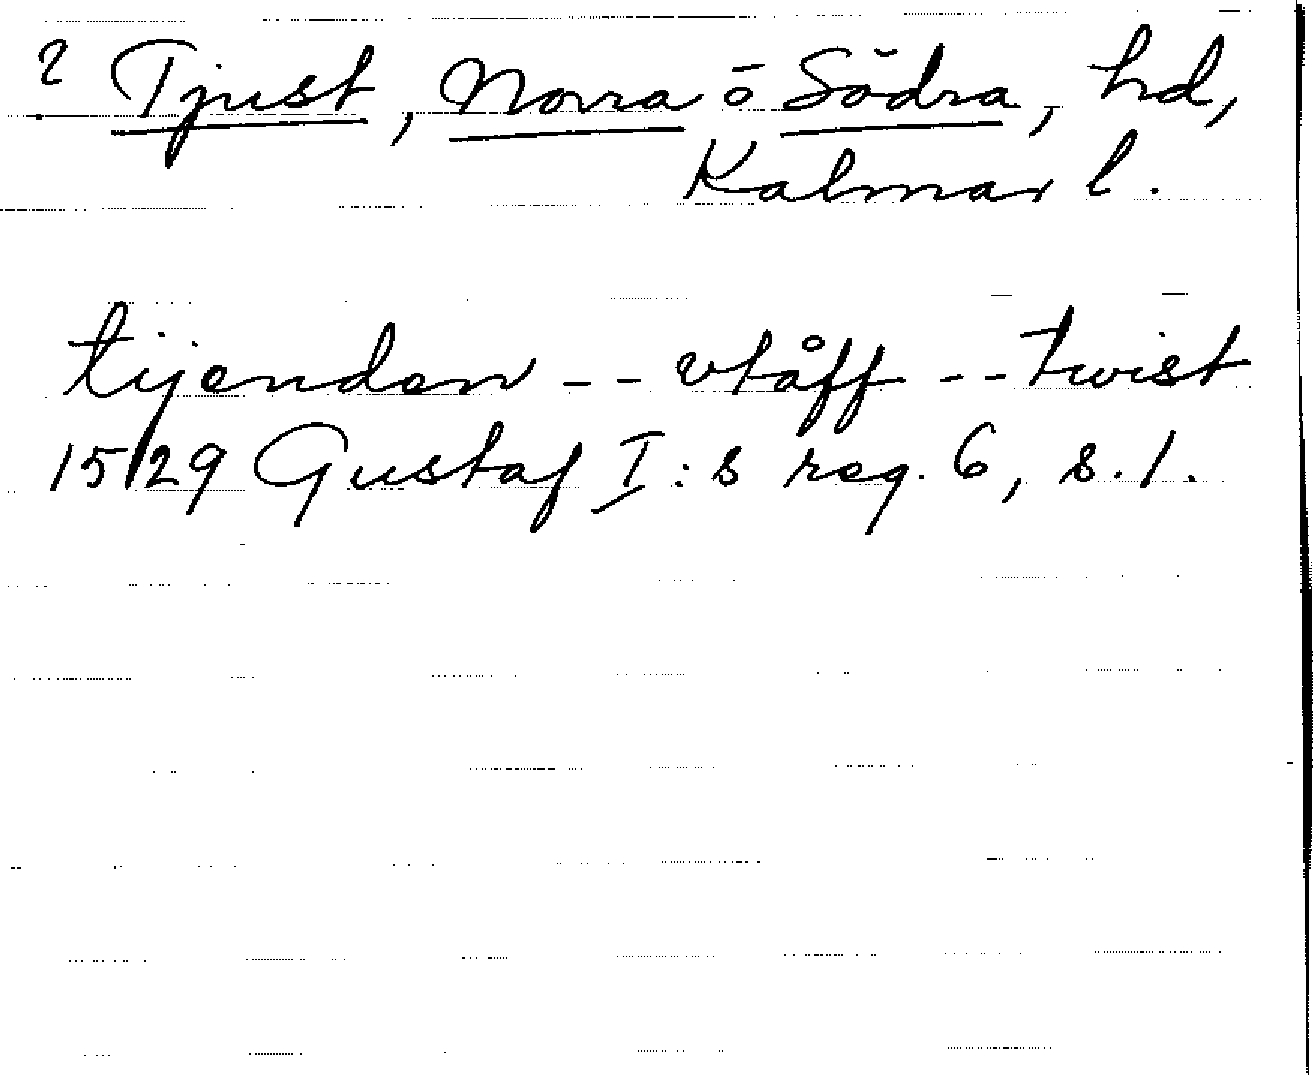 ? Tjust, Norra o Södra, hd,
Kalmar l.
tijenden -- vtåff -- twist
1529 Gustaf I:s reg. 6, s. 1.